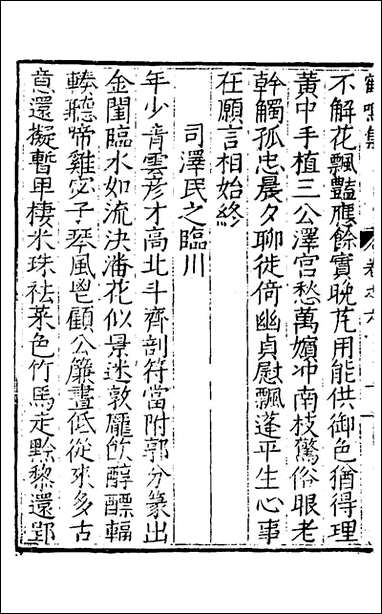 不解花飄豔應餘實晚芃用能供御色猶得理
黃中手植三公澤宮愁萬嬪冲南枝驚俗眼老
幹觸孤忠晨夕聊徙倚幽貞慰飄蓬平生心事
在願言相始終
司澤民之臨川
年少青雲彥才高北斗齊剖符當附郭分篆出
金閨臨水如流決潘花似景迷敦龐飲醇醲輻
輳聽啼雞宓子琴風鬯顧公簾晝低從來多古
意還擬暫卑棲米珠袪菜色竹馬走黔黎還郢